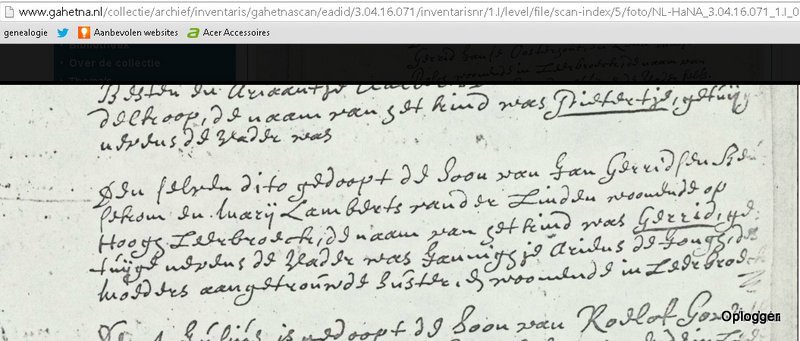 www.gahetna.nl/collectie/archief/inventaris/gahetnascan/eadid/3.04.16.071/inventarisnr/1.I/level/file/scan-index/5/foto/NL-HaNA_3.04.16.071_1.I_0
genealogie Aanbevolen websites Acer Accessoires
Bibliotheek
Over de collectie
Besten en Ariaantje
delkoop, de naam van het kind was Pietertje, getuijg
nevens de Vader was
Den selven dito gedoopt de soon van Jan Gerridsen
en Marij Lamberts vander Linden woonende op
Hoogh Leerbroeck, de naam van het kind was Gerrid, ge
tuijge nevens de Vader was Ariens de Jongh, des
Moeders aangetrouwde suster, woonende in Leerbroeck
is gedoopt de soon van Roelof
Oplogger